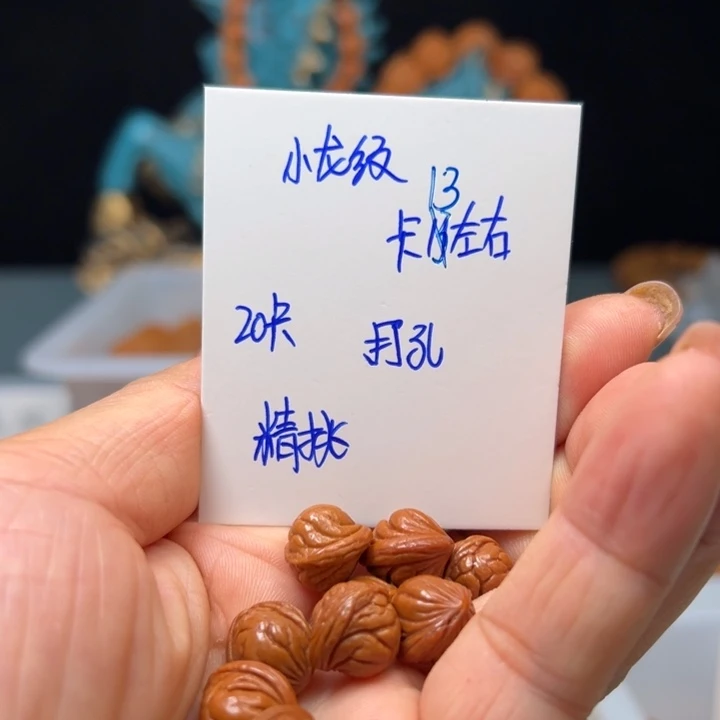 小龙纹
13
卡左右
20卡 打孔
精挑